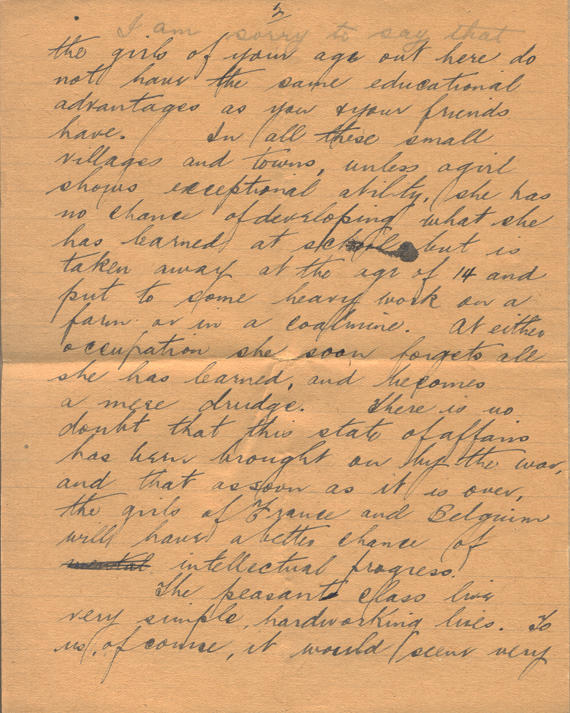 3
I am sorry to say that
the girls of your age out here do
not have the same educational
advantages as you & your friends
have. In all these small
villages and towns, unless a girl
shows exceptional ability, she has
no chance of developing what she
has learned at school but is
taken away at the age of 14 and
put to some heavy work on a
farm or in a coalmine. At either
occupation she soon forgets all
she has learned, and becomes
a mere drudge. There is no
doubt that this state of affairs
has been brought on by the war,
and that as soon as it is over,
the girls of France and Belgium
will have a better chance of
mental intellectual progress.
The peasant class live
very simple, hardworking lives. To
us, of course, it would seem very